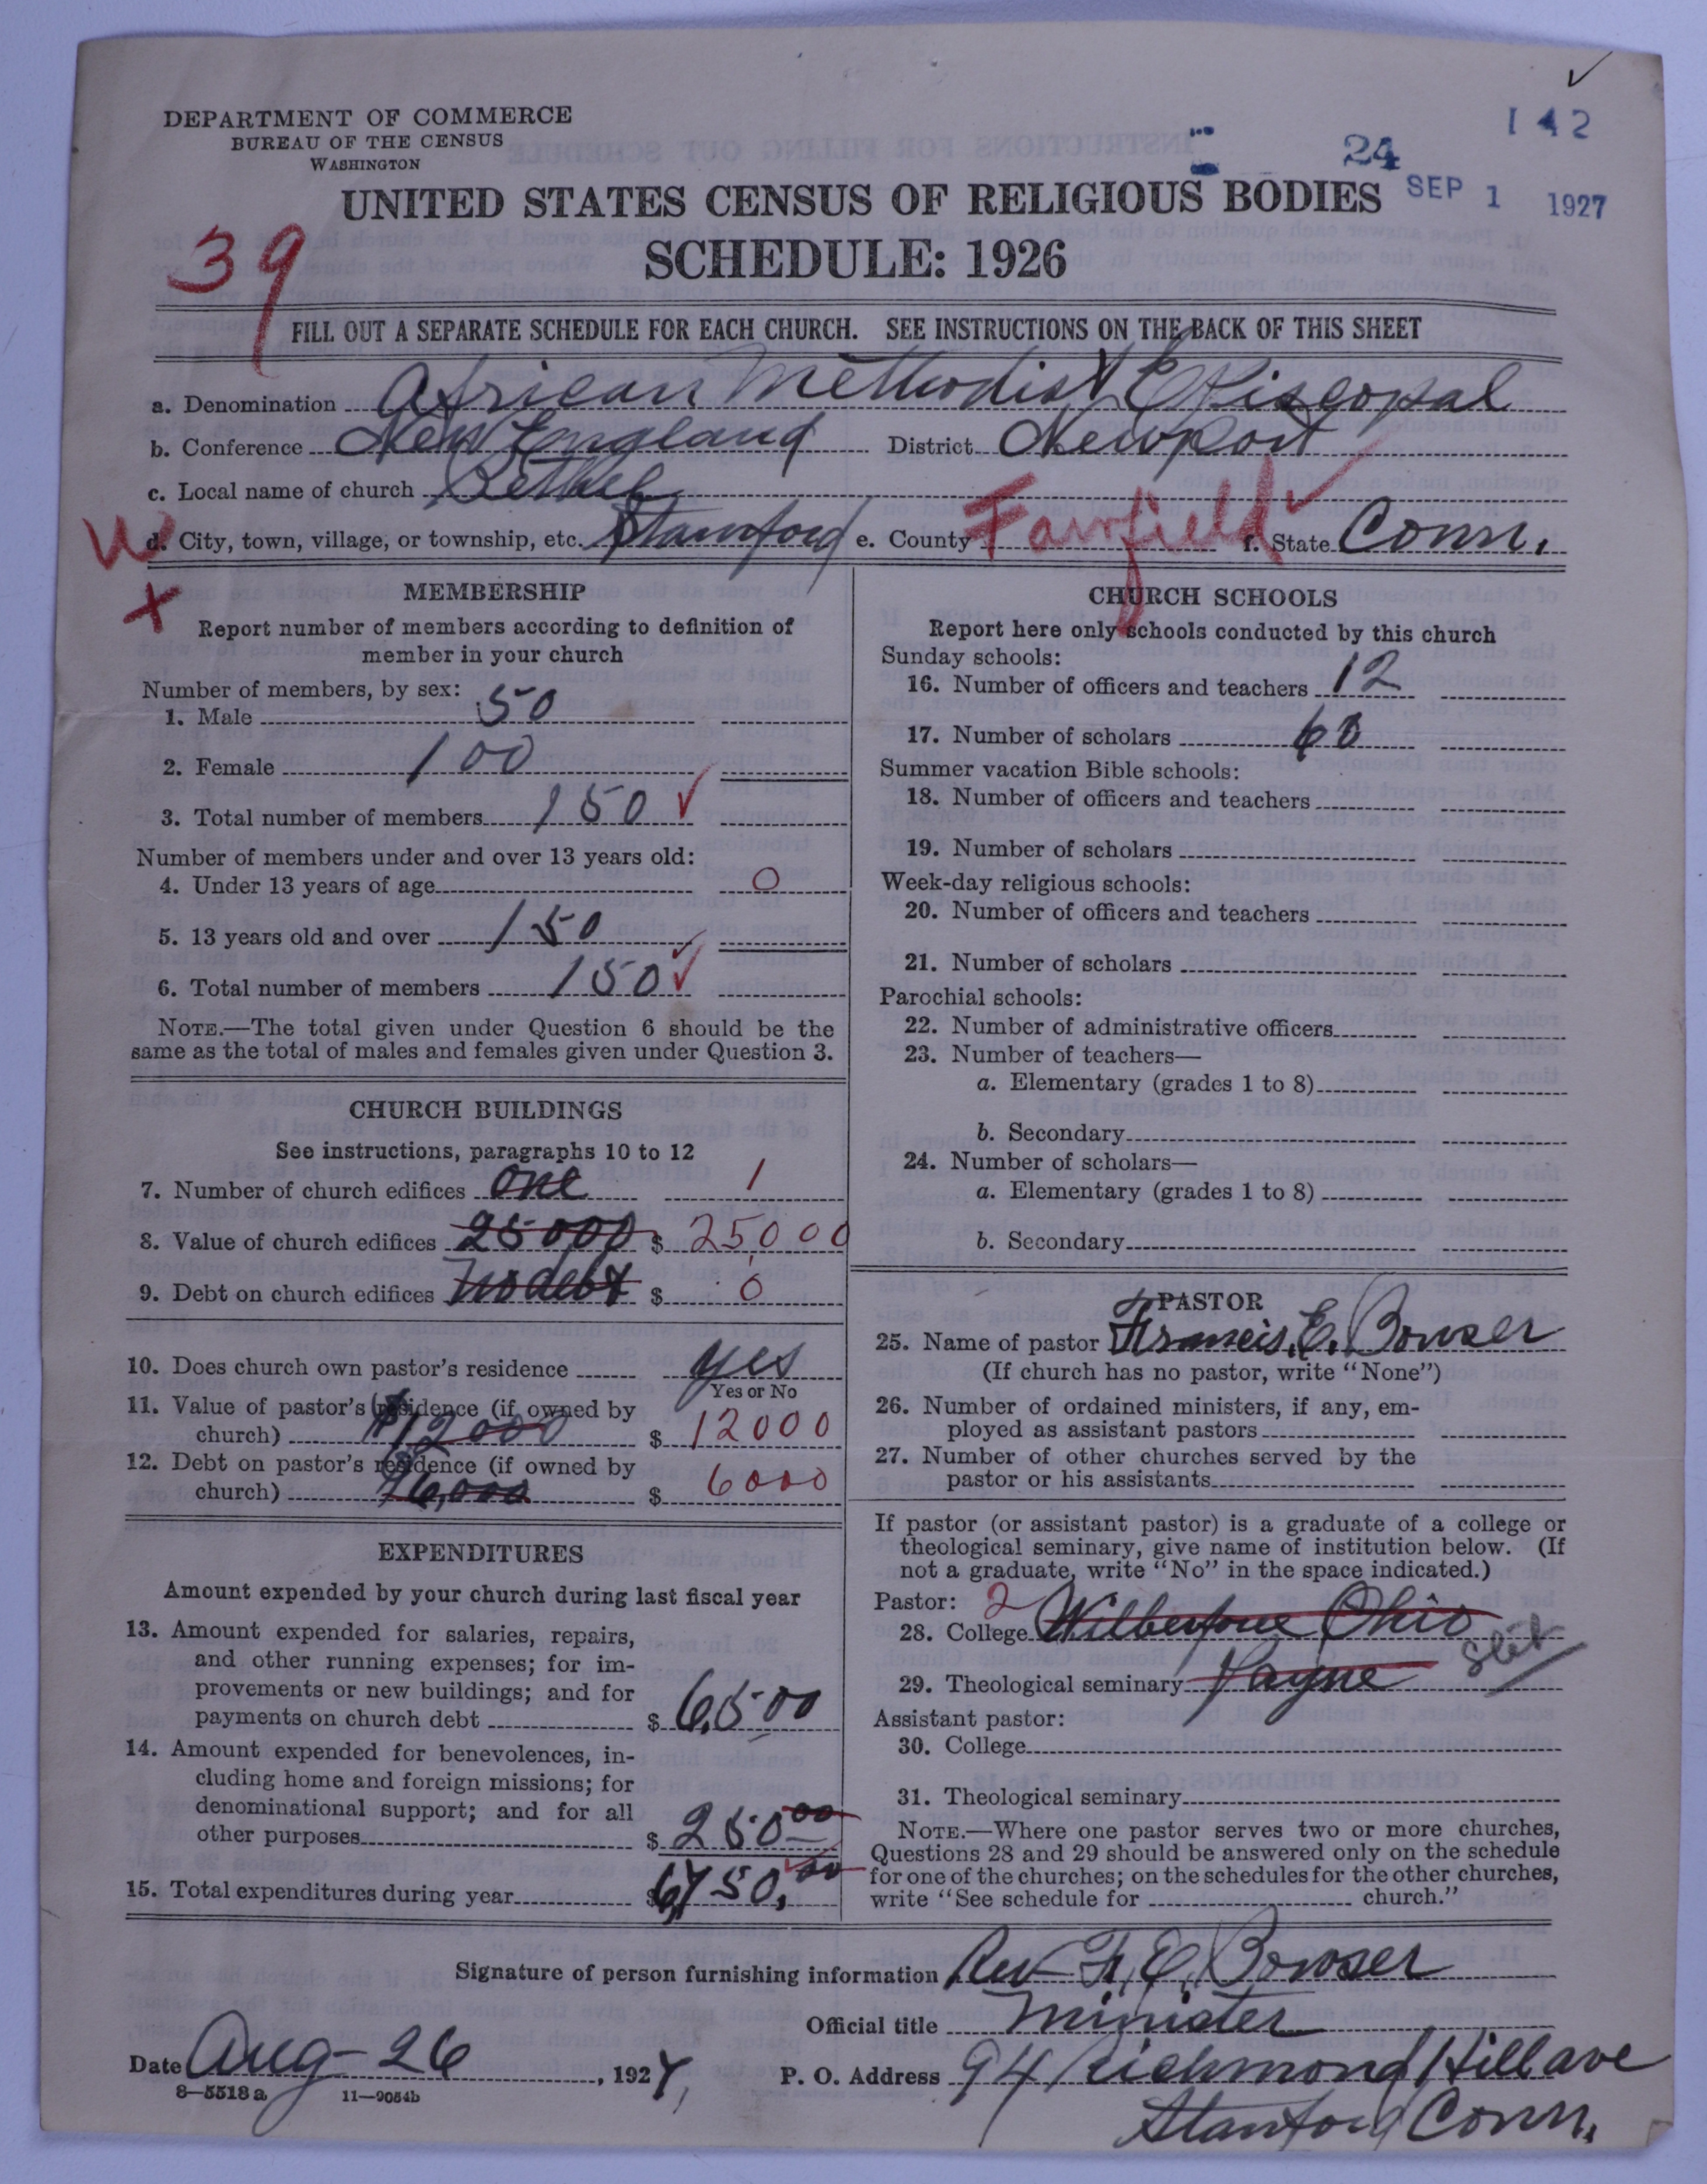 142
24
SEP 1 1927
DEPARTMENT OF COMMERCE
BUREAU OF THE CENSUS
WASHINGTON
UNITED STATES CENSUS OF RELIGIOUS BODIES
SCHEDULE: 1926
39
FILL OUT A SEPARATE SCHEDULE FOR EACH CHURCH. SEE INSTRUCTIONS ON THE BACK OF THIS SHEET
a. Denomination African Methodist Episcopal
b. Conference New England District Newport
c. Local name of church Bethel
d. City, town, village, or township, etc. Stamford e. County Fairfield f. State Conn.
MEMBERSHIP
Report number of members according to definition of
member in your church
Number of members, by sex:
1. Male 50
2. Female 100
3. Total number of members 150
Number of members under and over 13 years old:
4. Under 13 years of age 0
5. 13 years old and over 150
6. Total number of members 150
NOTE.—The total given under Question 6 should be the
same as the total of males and females given under Question 3.
CHURCH BUILDINGS
See instructions, paragraphs 10 to 12
7. Number of church edifices one 1
8. Value of church edifices 25000 $ 25000
9. Debt on church edifices No debt $ 0
10. Does church own pastor's residence yes
Yes or No
11. Value of pastor's residence (if owned by
church) $12000 $ 12000
12. Debt on pastor's residence (if owned by
church) $6,000 $ 6000
EXPENDITURES
Amount expended by your church during last fiscal year
13. Amount expended for salaries, repairs,
and other running expenses; for im-
provements or new buildings; and for
payments on church debt $ 6,500
14. Amount expended for benevolences, in-
cluding home and foreign missions; for
denominational support; and for all
other purposes $ 250.00
15. Total expenditures during year $ 6,750.00
CHURCH SCHOOLS
Report here only schools conducted by this church
Sunday schools:
16. Number of officers and teachers 12
17. Number of scholars 60
Summer vacation Bible schools:
18. Number of officers and teachers
19. Number of scholars
Week-day religious schools:
20. Number of officers and teachers
21. Number of scholars
Parochial schools:
22. Number of administrative officers
23. Number of teachers—
a. Elementary (grades 1 to 8)
b. Secondary
24. Number of scholars—
a. Elementary (grades 1 to 8)
b. Secondary
PASTOR
25. Name of pastor Francis. E. Bowser
(If church has no pastor, write "None")
26. Number of ordained ministers, if any, em-
ployed as assistant pastors
27. Number of other churches served by the
pastor or his assistants
If pastor (or assistant pastor) is a graduate of a college or
theological seminary, give name of institution below. (If
not a graduate, write "No" in the space indicated.)
Pastor: 2
28. College Wilberforce Ohio
29. Theological seminary Payne
Assistant pastor:
30. College
31. Theological seminary
NOTE.—Where one pastor serves two or more churches,
Questions 28 and 29 should be answered only on the schedule
for one of the churches; on the schedules for the other churches,
write "See schedule for church."
Signature of person furnishing information Rev F. E. Bowser
Official title Minister
Date Aug-26, 1927, P. O. Address 94 Richmond Hill ave
Stamford Conn.
8-5518a 11-9054b